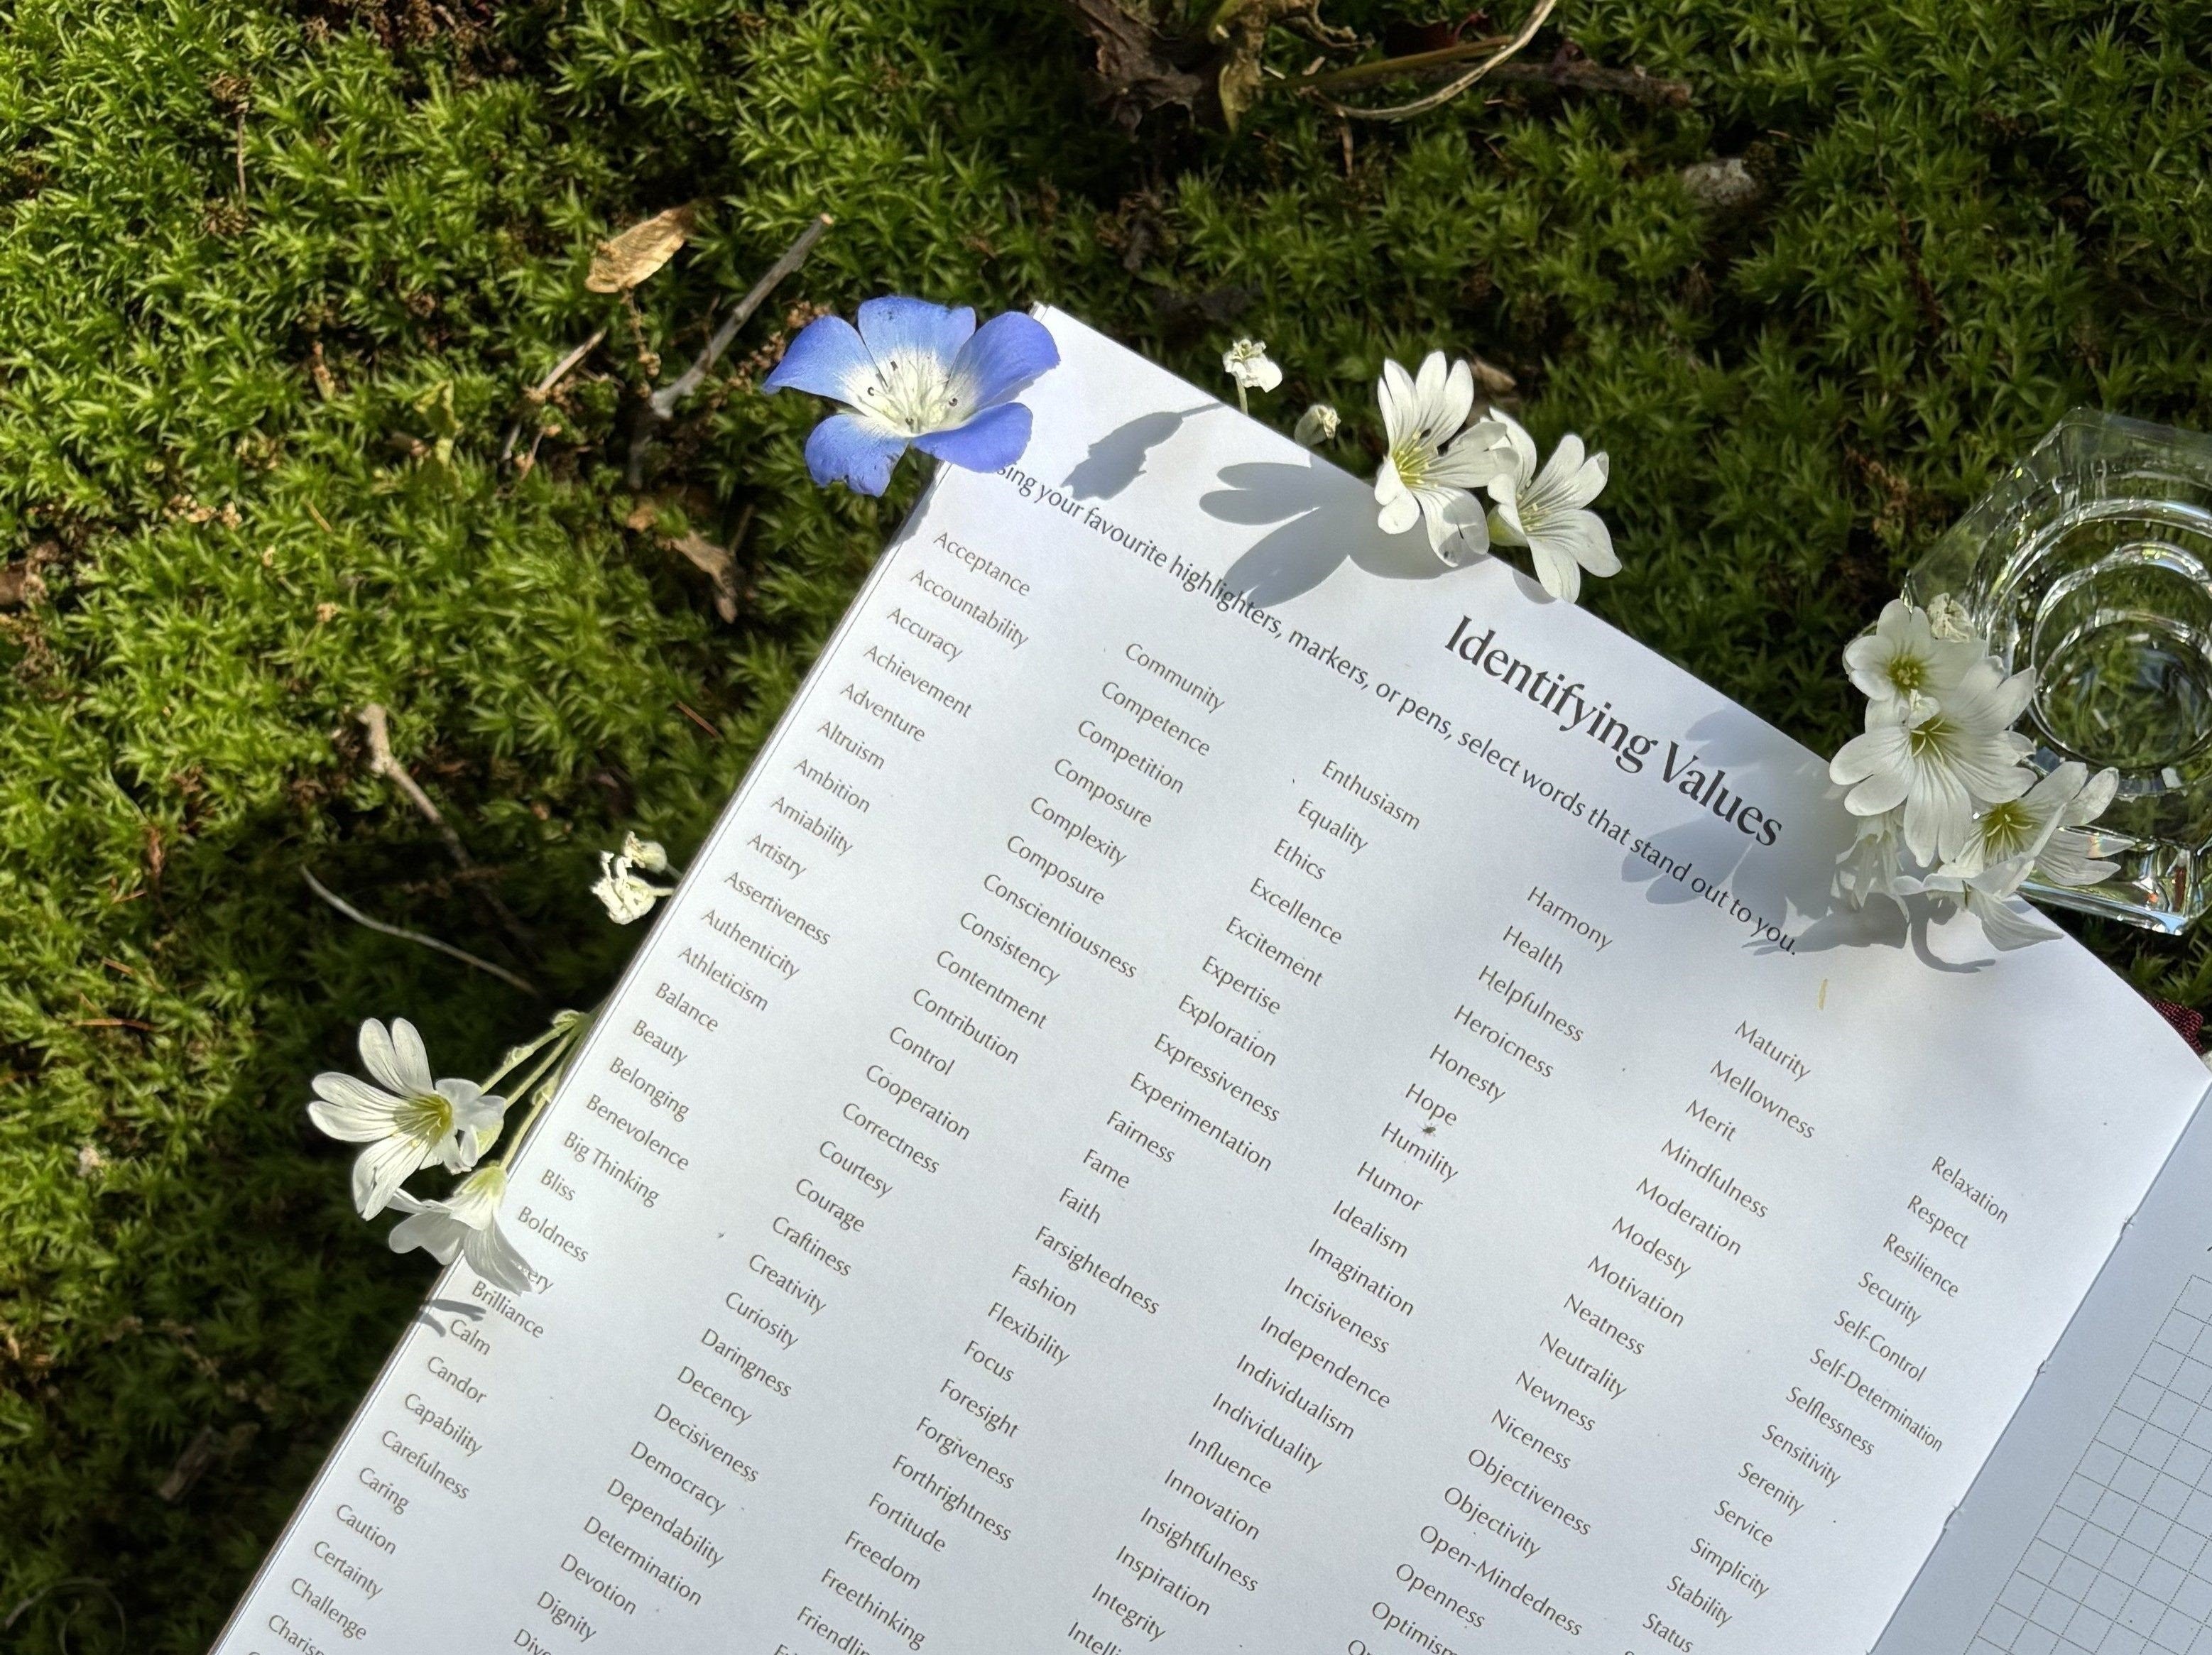 Identifying Values
sing your favourite highlighters, markers, or pens, select words that stand out to you.
Acceptance
Accountability
Accuracy
Achievement
Adventure
Altruism
Ambition
Amiability
Artistry
Assertiveness
Authenticity
Athleticism
Balance
Beauty
Belonging
Benevolence
Big Thinking
Bliss
Boldness
ery
Brilliance
Calm
Candor
Capability
Carefulness
Caring
Caution
Certainty
Challenge
Charism
Community
Competence
Competition
Composure
Complexity
Composure
Conscientiousness
Consistency
Contentment
Contribution
Control
Cooperation
Correctness
Courtesy
Courage
Craftiness
Creativity
Curiosity
Daringness
Decency
Decisiveness
Democracy
Dependability
Determination
Devotion
Dignity
Dive
Enthusiasm
Equality
Ethics
Excellence
Excitement
Expertise
Exploration
Expressiveness
Experimentation
Fairness
Fame
Faith
Farsightedness
Fashion
Flexibility
Focus
Foresight
Forgiveness
Forthrightness
Fortitude
Freedom
Freethinking
Friendlin
Harmony
Health
Helpfulness
Heroicness
Honesty
Hope
Humility
Humor
Idealism
Imagination
Incisiveness
Independence
Individualism
Individuality
Influence
Innovation
Insightfulness
Inspiration
Integrity
Intelli
Maturity
Mellowness
Merit
Mindfulness
Moderation
Modesty
Motivation
Neatness
Neutrality
Newness
Niceness
Objectiveness
Objectivity
Open-Mindedness
Openness
Optimism
Relaxation
Respect
Resilience
Security
Self-Control
Self-Determination
Selflessness
Sensitivity
Serenity
Service
Simplicity
Stability
Status